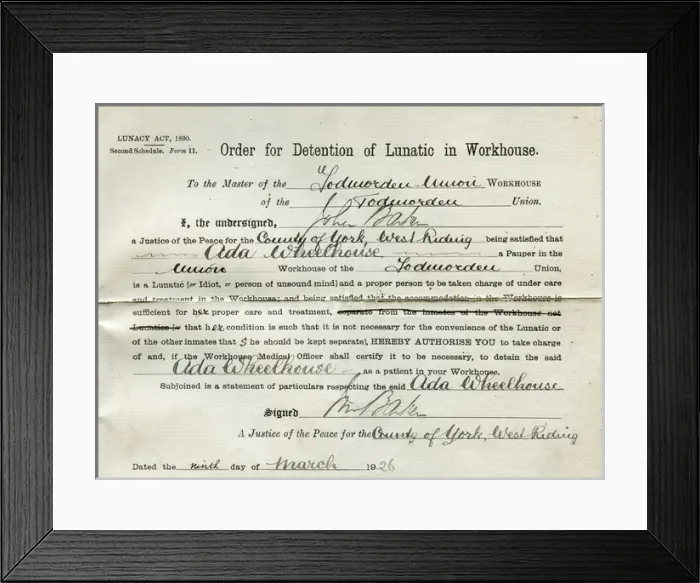 LUNACY ACT, 1890.
Second Schedule. Form 11.
Order for Detention of Lunatic in Workhouse.
To the Master of the Todmorden Union WORKHOUSE
of the Todmorden Union.
I, the undersigned, John Baker
a Justice of the Peace for the County of York, West Riding being satisfied that
Ada Wheelhouse a Pauper in the
Union Workhouse of the Todmorden Union,
is a Lunatic [or Idiot, or person of unsound mind] and a proper person to be taken charge of under care
and treatment in the Workhouse; and being satisfied that the accommodation in the Workhouse is
sufficient for her proper care and treatment, separate from the inmates of the Workhouse not
Lunatics [or that her condition is such that it is not necessary for the convenience of the Lunatic or
of the other inmates that She should be kept separate], HEREBY AUTHORISE YOU to take charge
of and, if the Workhouse Medical Officer shall certify it to be necessary, to detain the said
Ada Wheelhouse as a patient in your Workhouse.
Subjoined is a statement of particulars respecting the said Ada Wheelhouse
Signed Jno Baker
A Justice of the Peace for the County of York, West Riding
Dated the ninth day of March 1926